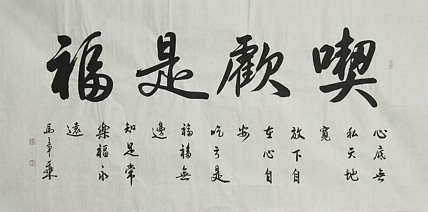 喫虧是福
心底無
私天地
寬
放下自
在心自
安
吃亏是
福福無
邊
知足常
樂福永
遠
馬章乘